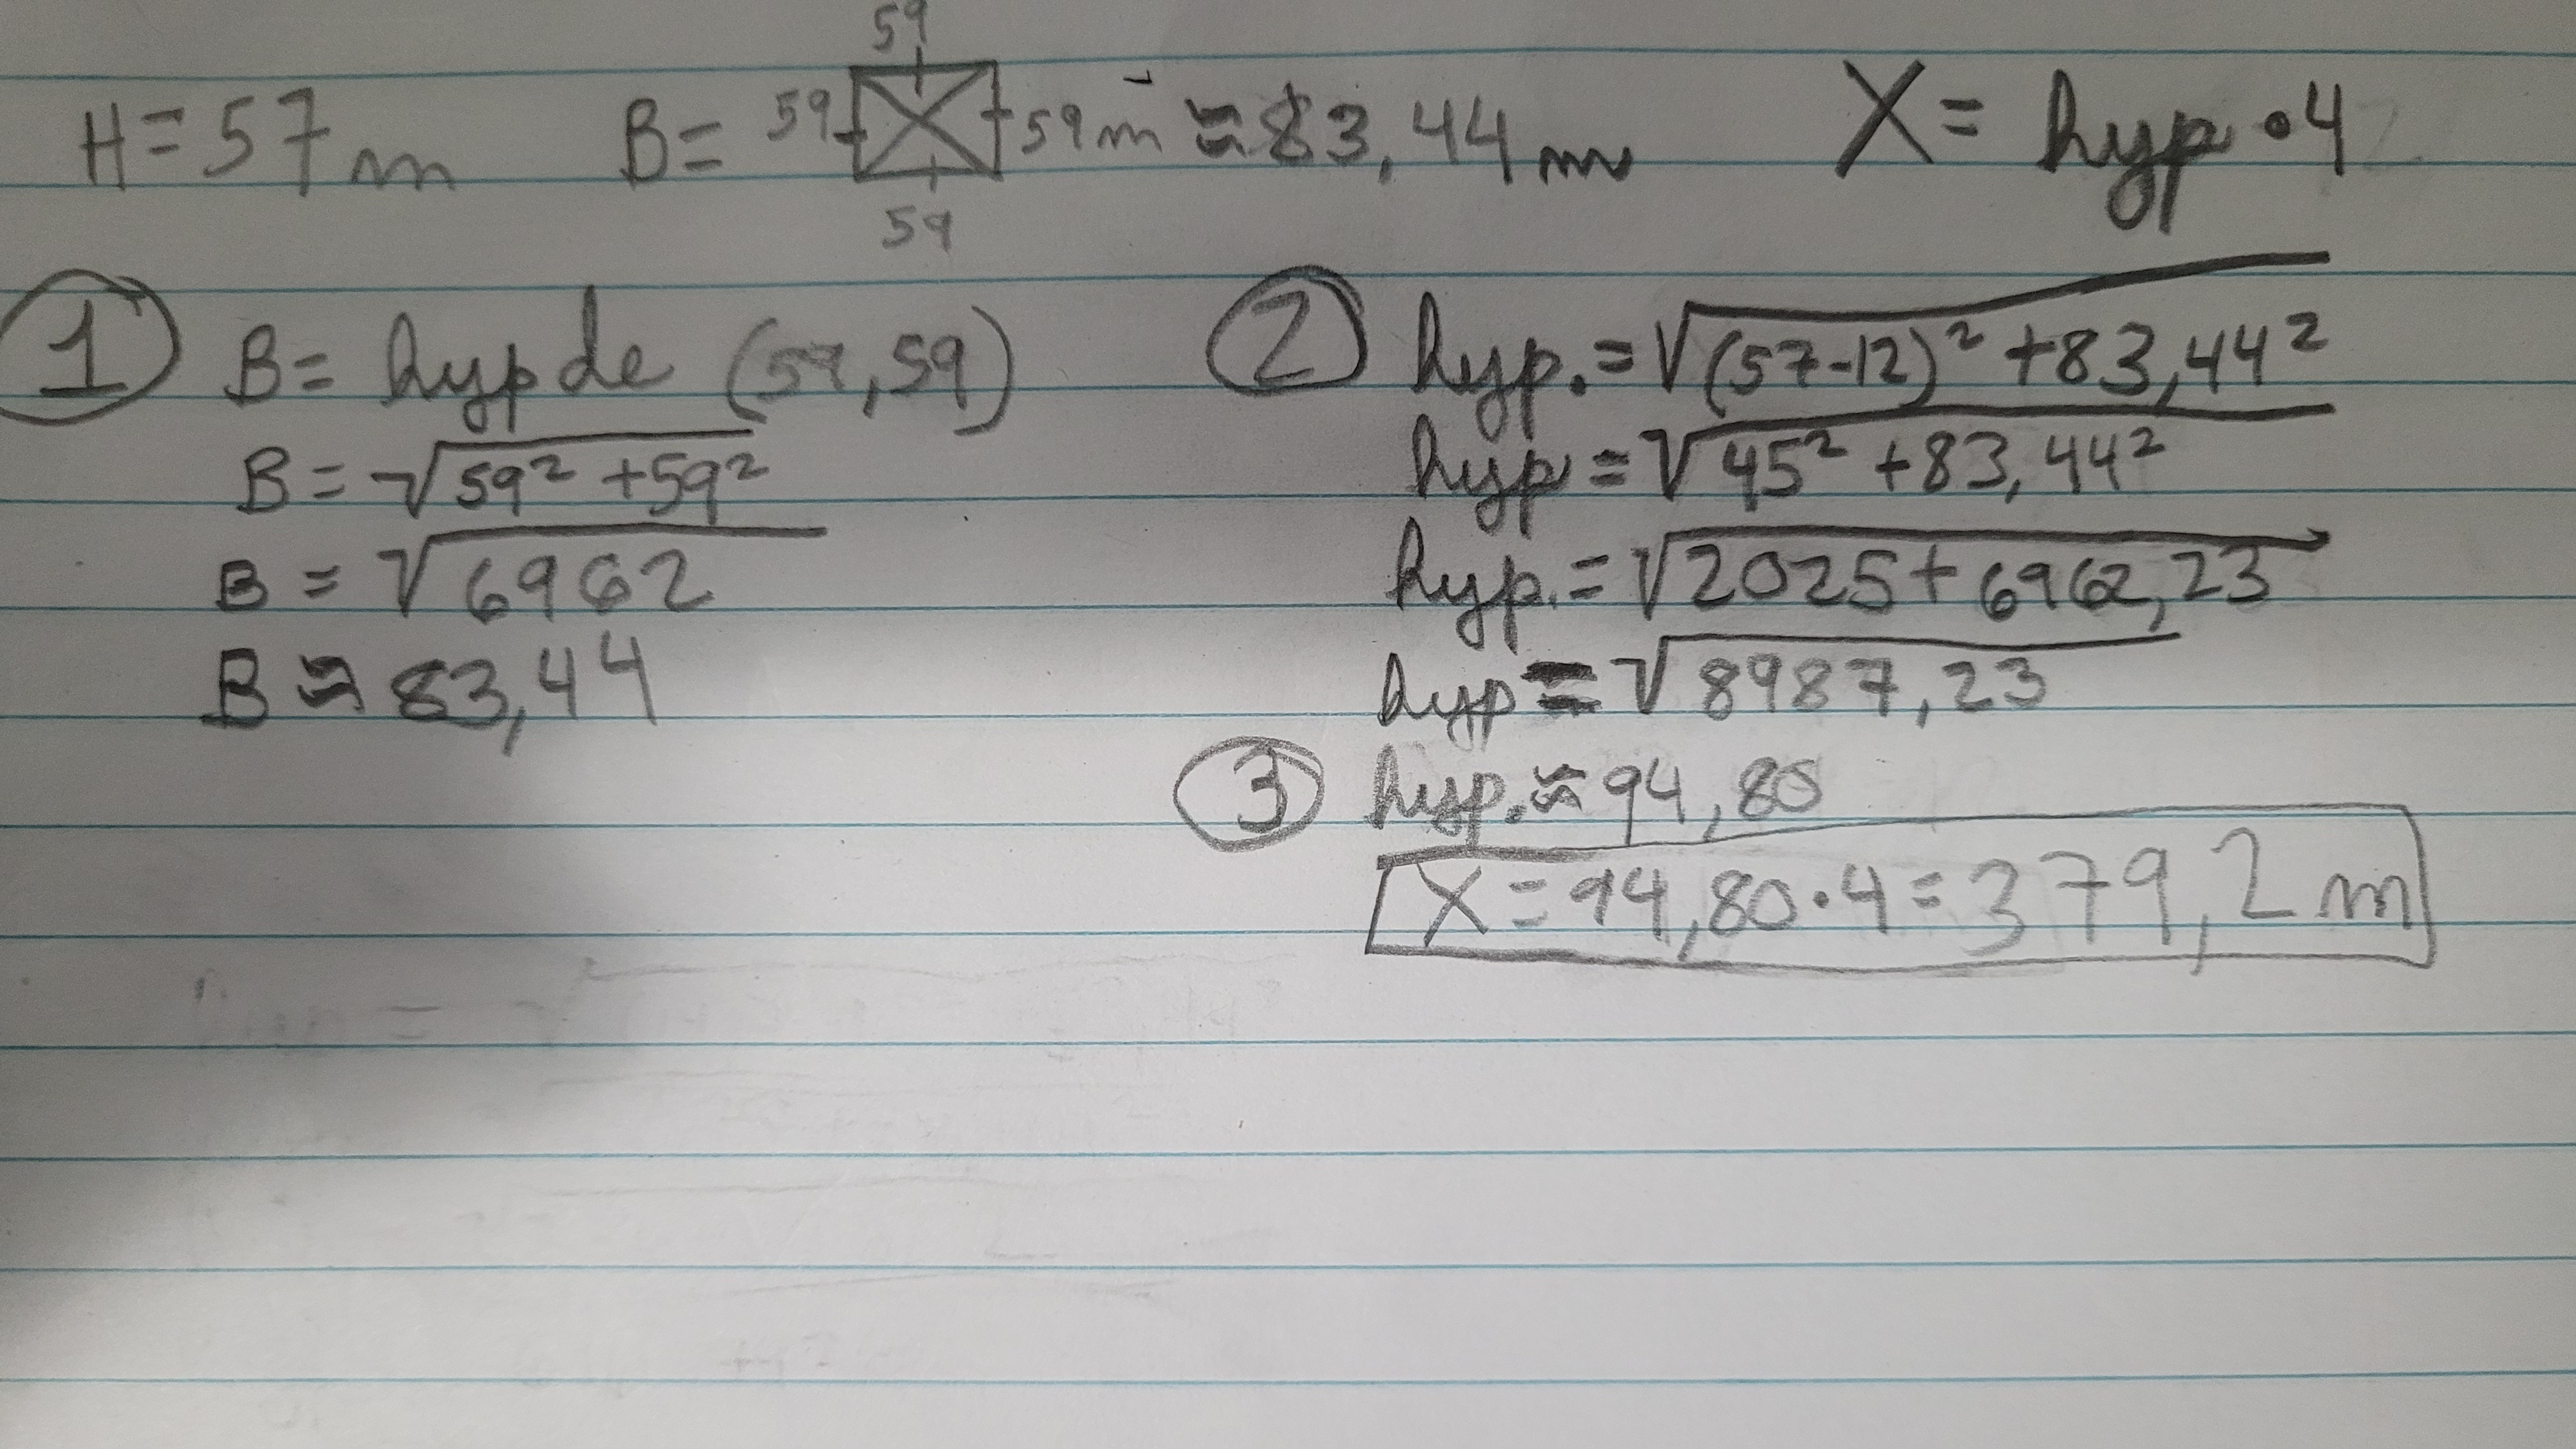 59
H = 57 m B = 59 59 m ≈ 83,44 m X = hyp • 4
59
1 B = hyp de (59,59)
B = √59² + 59²
B = √6962
B ≈ 83,44
2 hyp. = √(57-12)² + 83,44²
hyp = √45² + 83,44²
hyp. = √2025 + 6962,23
hyp = √8987,23
3 hyp. ≈ 94,80
X = 94,80 • 4 = 379,2 m